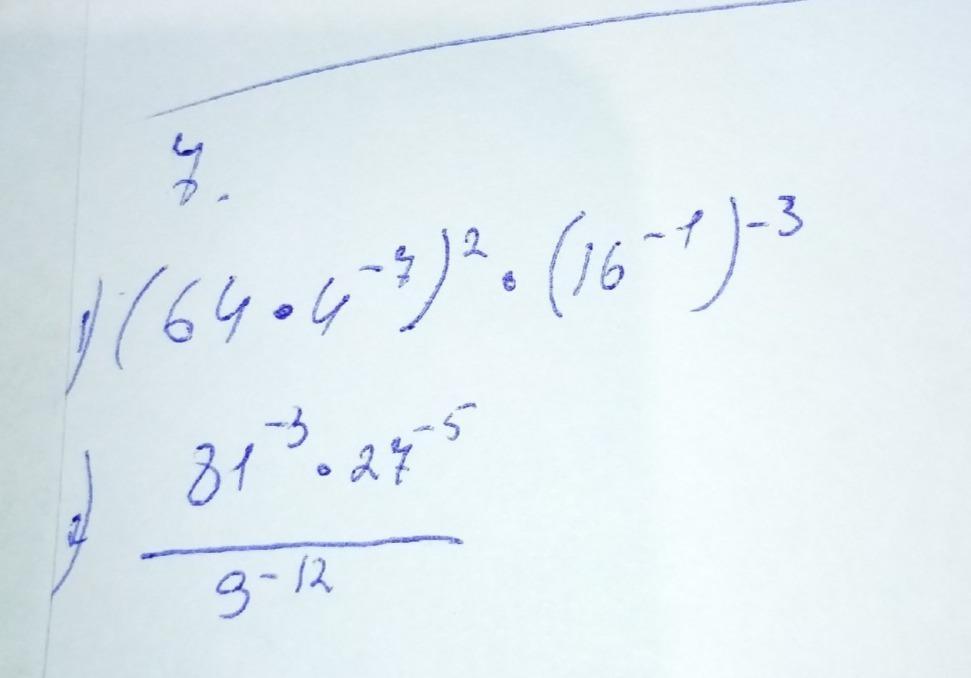 7.
1) (64 • 4⁻⁷)² • (16⁻¹)⁻³
2) 81⁻³ • 27⁻⁵
9⁻¹²